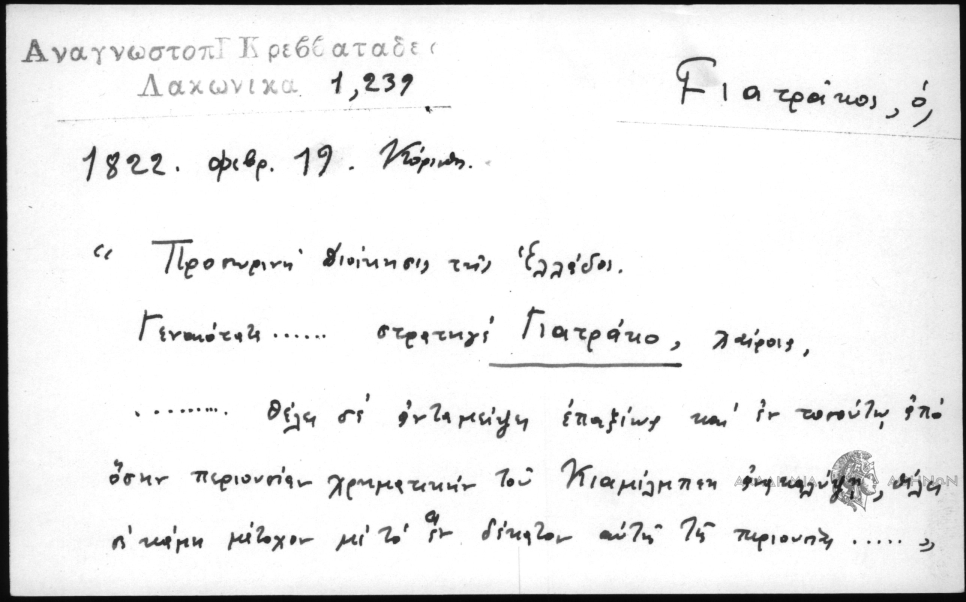 ΑναγνωστοπΓ Κρεββαταδες
Λακωνικα 1,239
Γιατράκος, ὁ,
1822. φεβρ. 19. Κόρινθ.
“ Προσωρινὴ Διοίκησις τῆς Ἑλλάδος.
Γενναιότατε ...... στρατηγέ Γιατράκο, χαίροις,
.......... θέλει σέ ἀνταμείψῃ ἐπαξίως καί ἐν τοσούτῳ ἀπό
ὅσην περιουσίαν χρηματικήν τοῦ Κιαμίλμπεη ἀνακαλύψῃ, θέλει
σέ κάμῃ μέτοχον μέ τό ἕν δέκατον αὐτῆς τῆς περιουσίας ..... „
ΑΚΑΔΗΜΙΑ ΑΘΗΝΩΝ